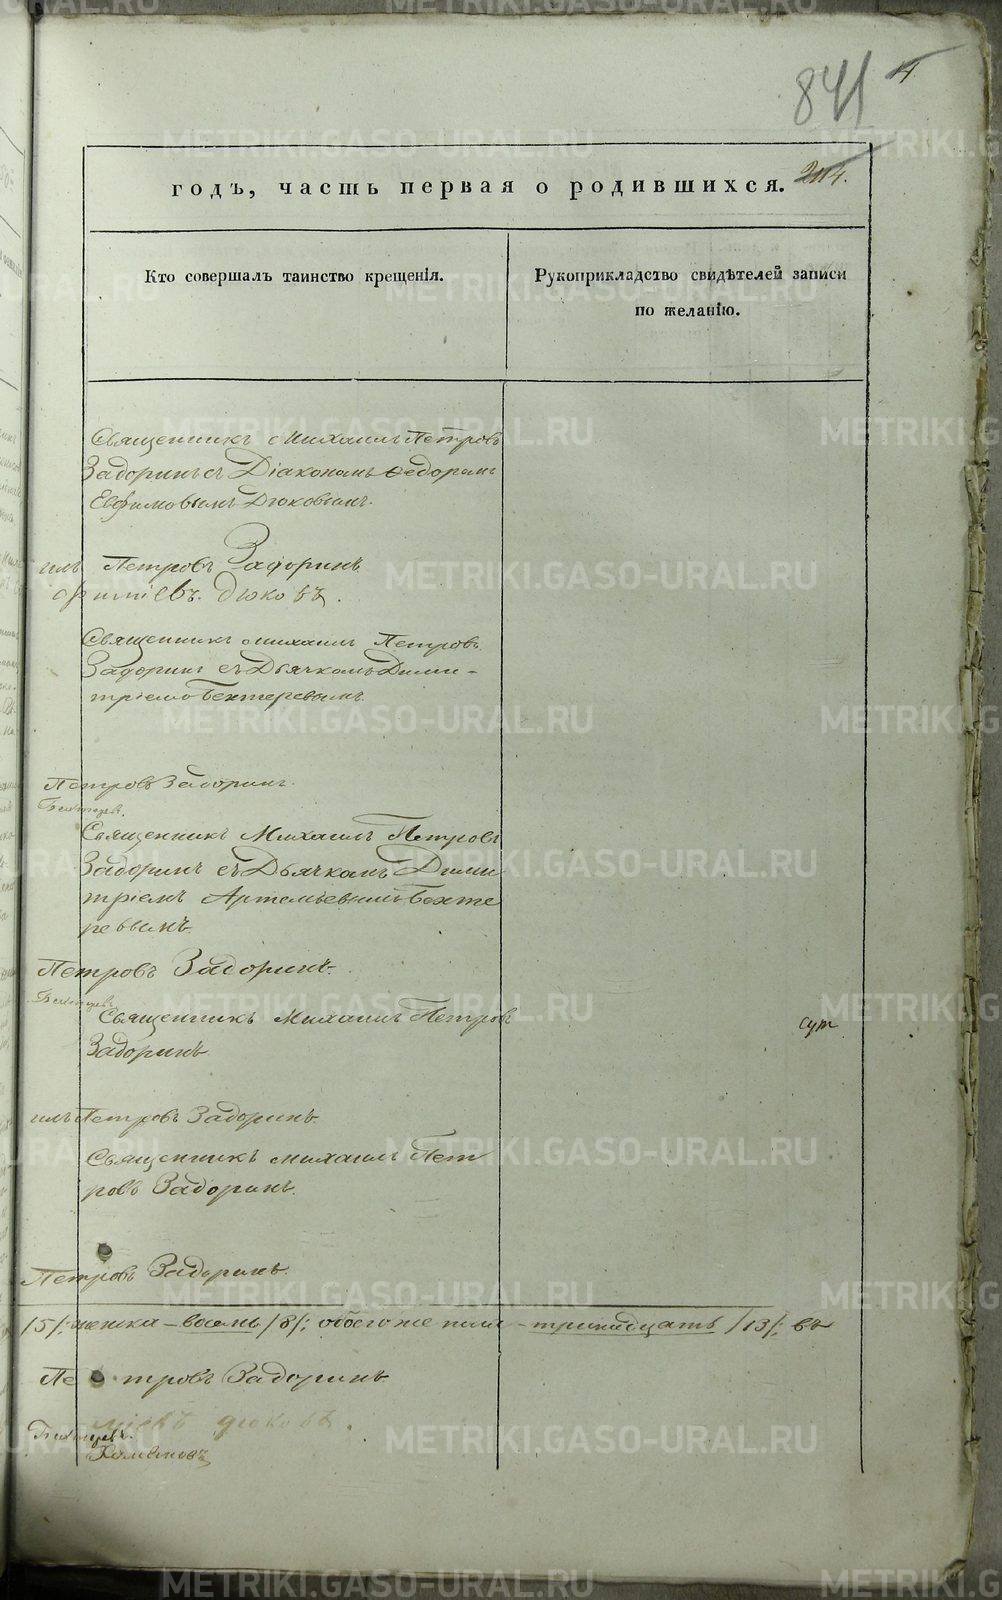 841 4
204.
годъ, часть первая о родившихся.
Кто совершалъ таинство крещенія.
Рукоприкладство свидѣтелей записи
по желанію.
Священникъ Михаилъ Петровъ
Задоринъ съ Діакономъ Ѳедоромъ
Евфимовымъ Дюковымъ.
илъ Петровъ Задоринъ
Дюковъ.
Священникъ Михаилъ Петровъ
Задоринъ съ Дьячкомъ Дими-
тріемъ Бехтеревымъ.
Петровъ Задоринъ.
Священникъ Михаилъ Петровъ
Задоринъ съ Дьячкомъ Дими
тріемъ Артемьевымъ Бехте
ревымъ
Петровъ Задоринъ.
Священникъ Михаилъ Петровъ
Задоринъ
сут
илъ Петровъ Задоринъ
Священникъ Михаилъ Пет
ровъ Задоринъ.
Петровъ Задоринъ.
/5/; женска – восемь /8/; обоего же пола – тринадцать /13/; въ
Петровъ Задоринъ
Дюковъ.
METRIKI.GASO-URAL.RU